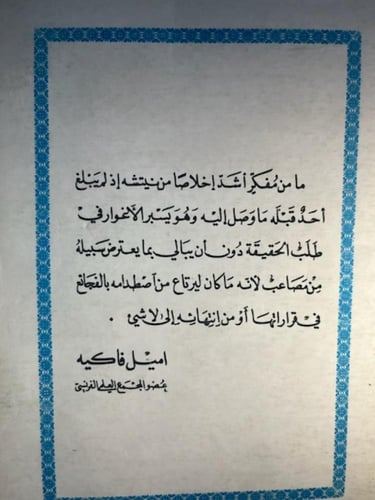 ما من مُفكّر أشدّ إخلاصًا من نيتشه إذ لم يَبلغ
أحدٌ قبْلَه مَا وَصل إليه وَهوَ يَسبر الأغوار في
طلَب الحَقيقَة دُونَ ان يبَالي بمَا يعترض سَبيلهُ
مِن مَصَاعبُ لأنه مَا كان ليرتاع من أصْطدامه بالفجائع
في قراراتها أو من إنتهائه إلى لاشيء .
اميْل فاكيه
عضو المجمع العلمي الفرنسي